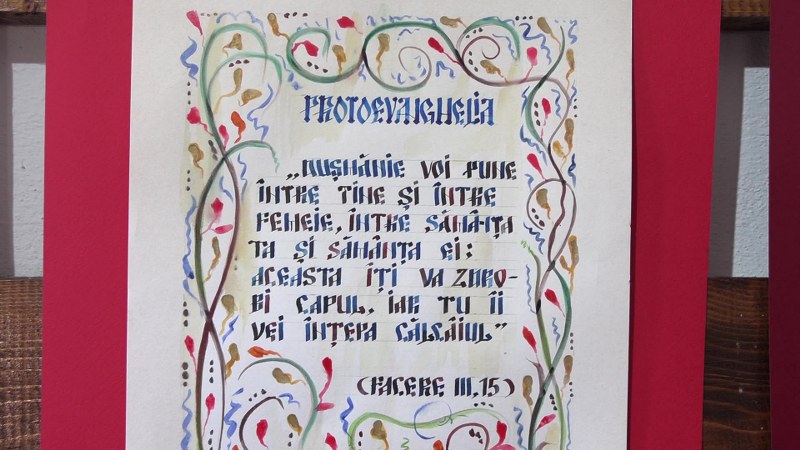 PROTOEVANGHELIA
„DUȘMĂNIE VOI PUNE
ÎNTRE TINE ȘI ÎNTRE
FEMEIE, ÎNTRE SĂMÂNȚA
TA ȘI SĂMÂNȚA EI;
ACEASTA ÎȚI VA ZDRO-
BI CAPUL, IAR TU ÎI
VEI ÎNȚEPA CĂLCÂIUL”
(FACERE III, 15)